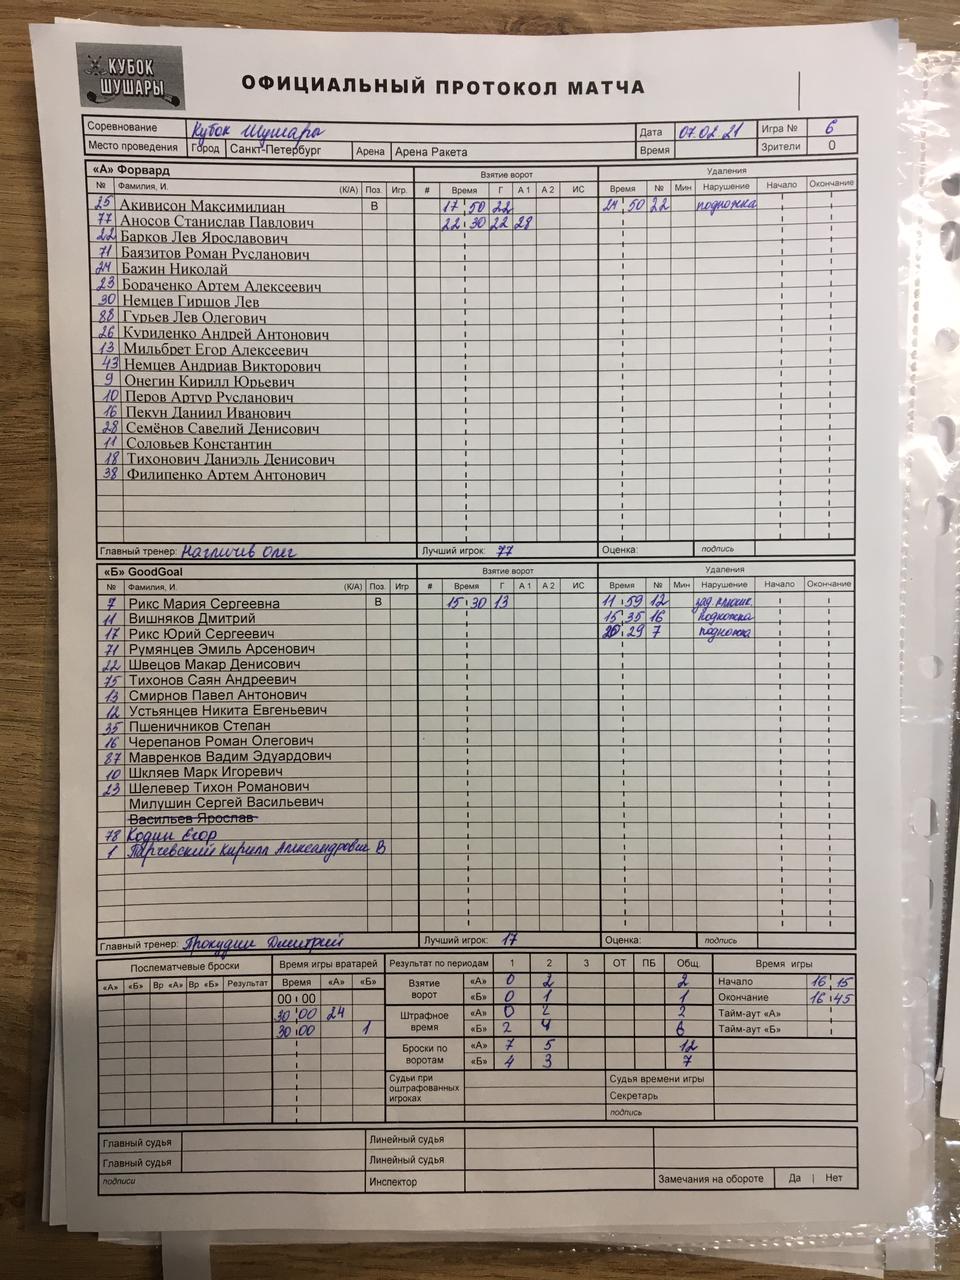 КУБОК
ШУШАРЫ
ОФИЦИАЛЬНЫЙ ПРОТОКОЛ МАТЧА
Соревнование Кубок Шушары Дата 07.02.21 Игра № 6
Место проведения Город Санкт-Петербург Арена Арена Ракета Время Зрители 0
«А» Форвард Взятие ворот Удаления
№ Фамилия, И. (К/А) Поз. Игр. # Время Г А 1 А 2 ИС Время № Мин Нарушение Начало Окончание
25 Акивисон Максимилиан В 17 50 22 21 50 22 подножка
77 Аносов Станислав Павлович 22 30 22 28
22 Барков Лев Ярославович
71 Баязитов Роман Русланович
24 Бажин Николай
23 Бораченко Артем Алексеевич
30 Немцев Гиршов Лев
88 Гурьев Лев Олегович
26 Куриленко Андрей Антонович
13 Мильбрет Егор Алексеевич
43 Немцев Андриав Викторович
9 Онегин Кирилл Юрьевич
10 Перов Артур Русланович
16 Пекун Даниил Иванович
28 Семёнов Савелий Денисович
11 Соловьев Константин
18 Тихонович Даниэль Денисович
38 Филипенко Артем Антонович
Главный тренер: Олег Лучший игрок: 77 Оценка: подпись
«Б» GoodGoal Взятие ворот Удаления
№ Фамилия, И. (К/А) Поз. Игр # Время Г А 1 А 2 ИС Время № Мин Нарушение Начало Окончание
7 Рикс Мария Сергеевна В 15 30 13 11 59 12
11 Вишняков Дмитрий 15 35 16 подножка
17 Рикс Юрий Сергеевич 20 29 7 подножка
71 Румянцев Эмиль Арсенович
22 Швецов Макар Денисович
75 Тихонов Саян Андреевич
13 Смирнов Павел Антонович
12 Устьянцев Никита Евгеньевич
35 Пшеничников Степан
16 Черепанов Роман Олегович
87 Мавренков Вадим Эдуардович
10 Шкляев Марк Игоревич
23 Шелевер Тихон Романович
Милушин Сергей Васильевич
Васильев Ярослав
78 Кодин Егор
1 Парчевский Кирилл Александрович В
Главный тренер: Прокудин Дмитрий Лучший игрок: 17 Оценка: подпись
Послематчевые броски Время игры вратарей Результат по периодам 1 2 3 ОТ ПБ Общ. Время игры
«А» «Б» Вр «А» Вр «Б» Результат Время «А» «Б» Взятие ворот «А» 0 2 2 Начало 16 15
00 00 «Б» 0 1 1 Окончание 16 45
30 00 24 Штрафное время «А» 0 2 2 Тайм-аут «А»
30 00 1 «Б» 2 4 6 Тайм-аут «Б»
Броски по воротам «А» 7 5 12
«Б» 4 3 7
Судьи при оштрафованных игроках Судья времени игры
Секретарь
подпись
Главный судья Линейный судья
Главный судья Линейный судья
подписи Инспектор Замечания на обороте Да | Нет